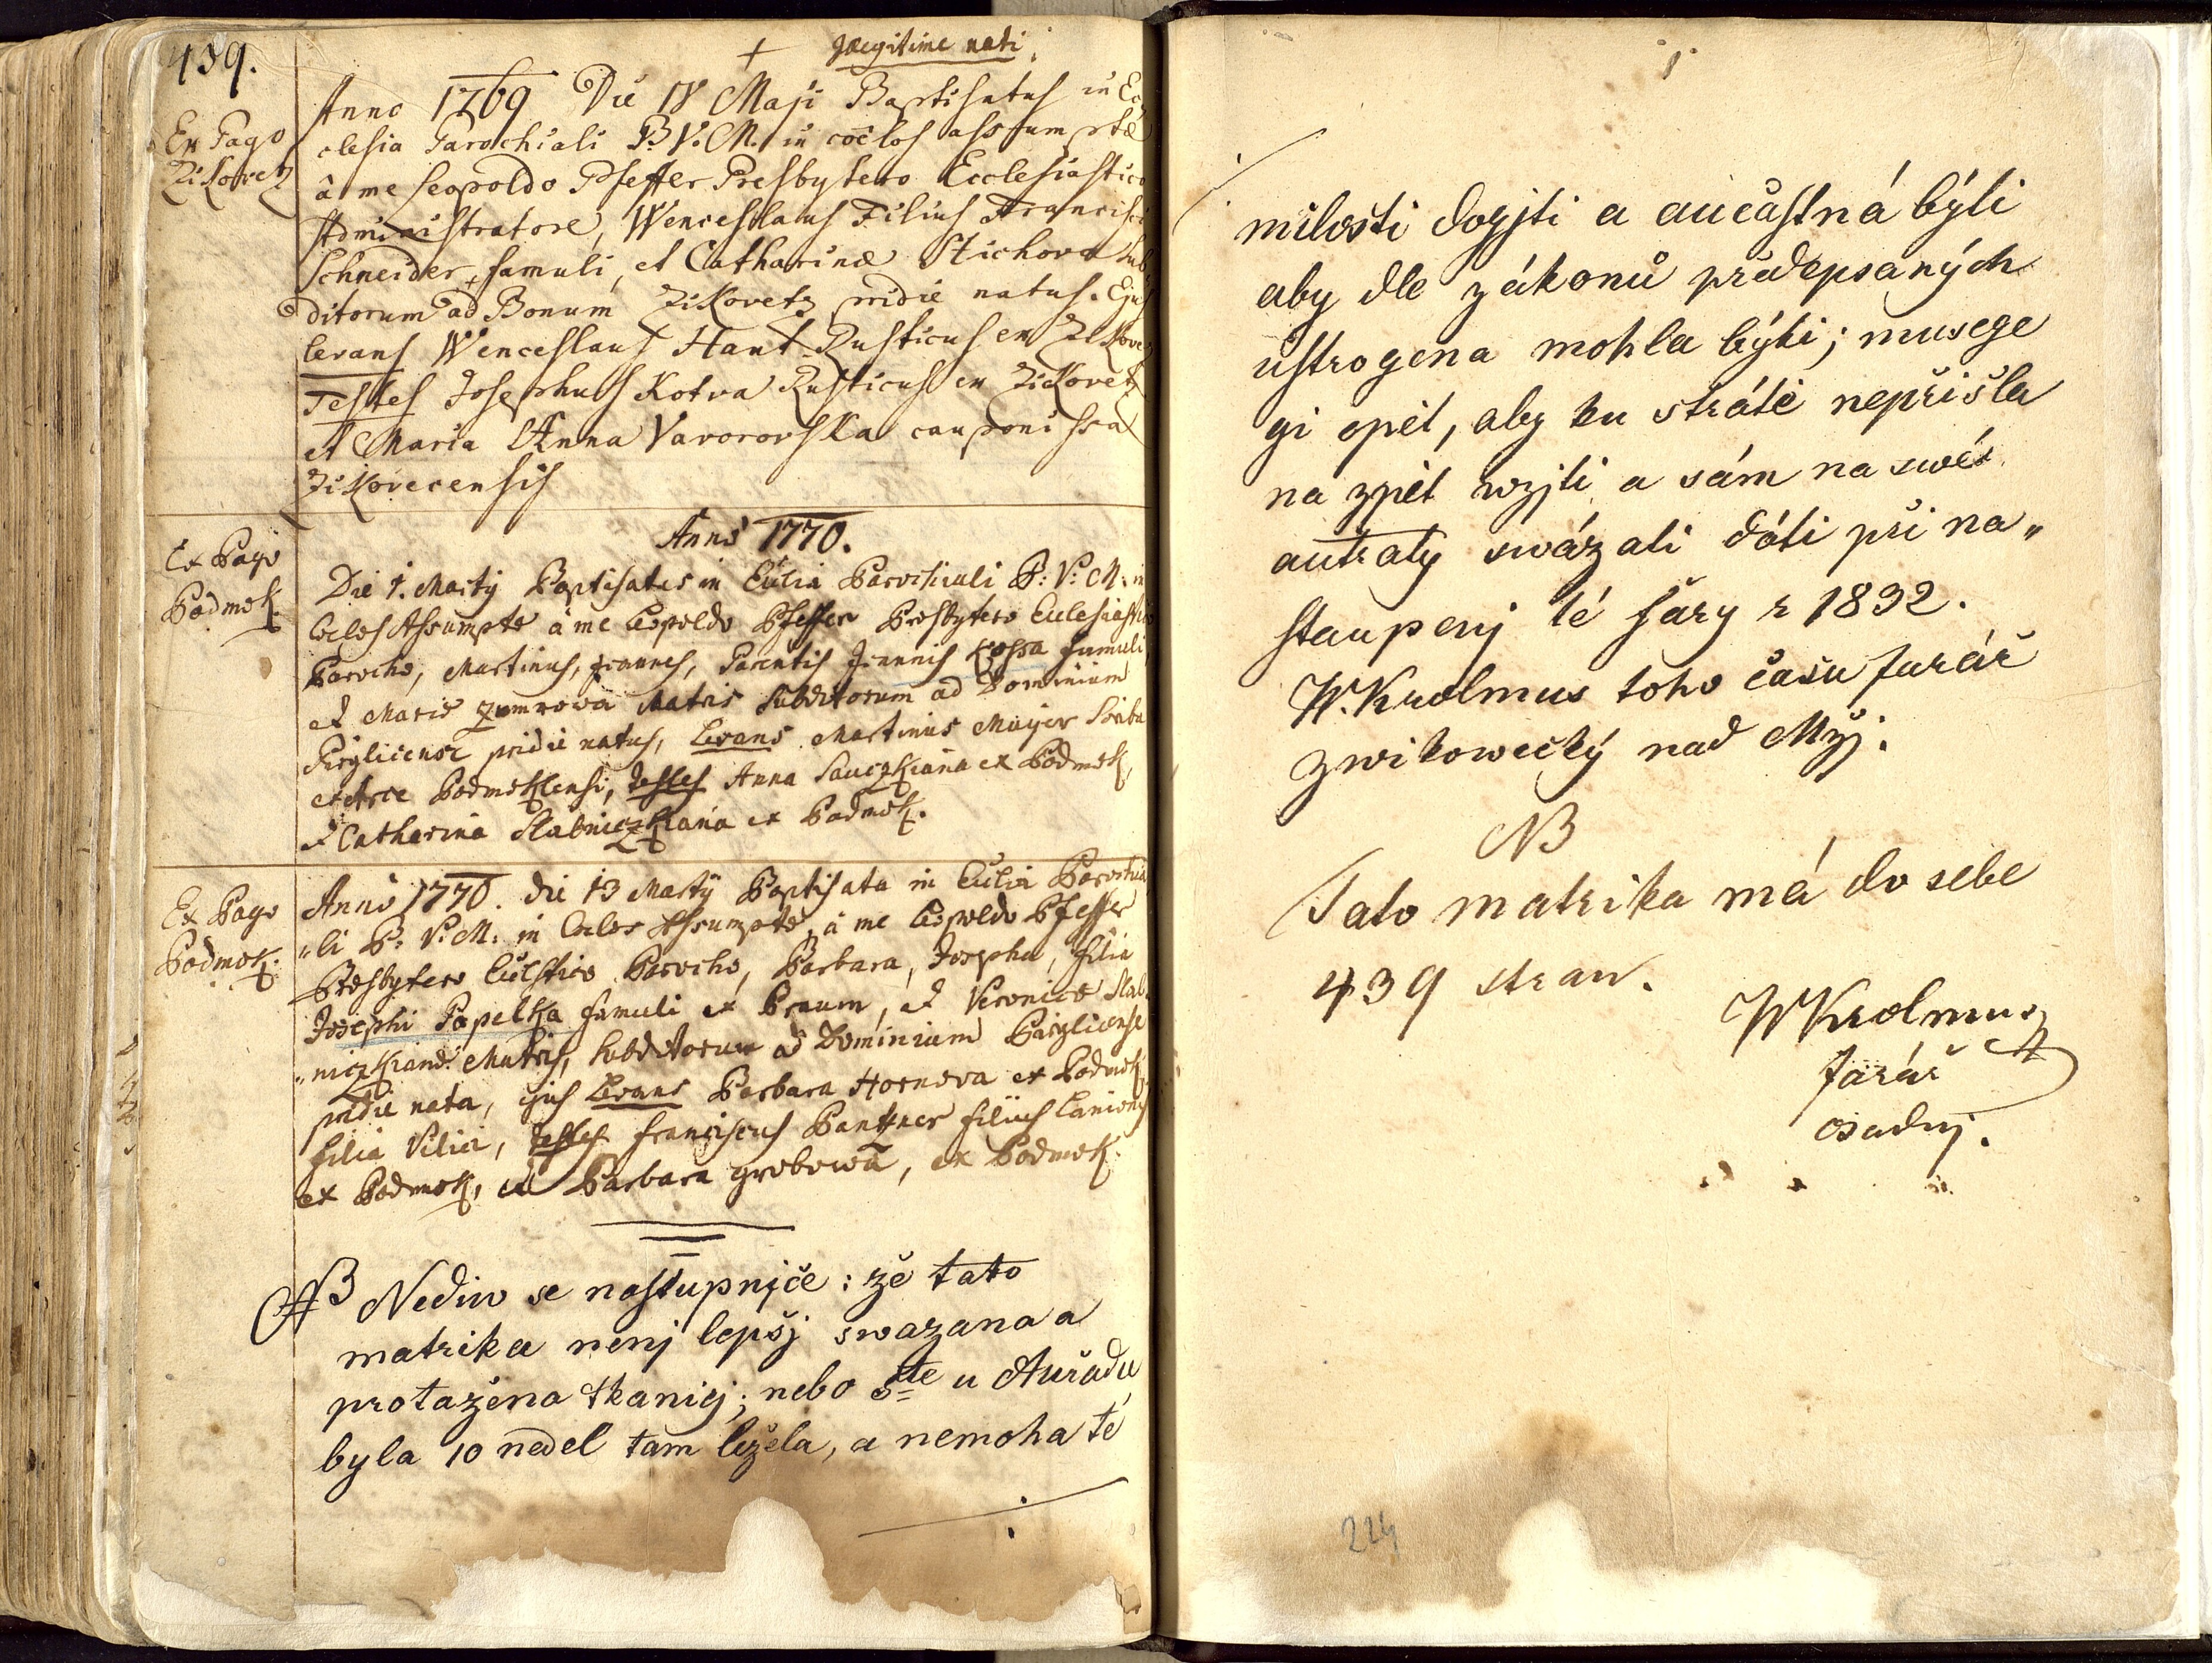 439.
+ Illegitime nati
Ex Pago
Zikovetz
Anno 1769 Die 18 Maji Baptisatus in Ec
clesia Parochiali B.V.M. in coelos assumptae
â me Leopoldo Pfeffer Presbytero Ecclesiastico
Administratore, Wenceslaus Filius Francisci
Schneider, famuli, et Catharinae Stichova Sub
ditorum ad Bonum Zikovetz pridie natus. Ejus
levans Wenceslaus Hant Rusticus ex Zikovetz
Testes Josephus Kotva Rusticus ex Zikovetz
et Maria Anna Vavorovska cauponissa
Zikovecensis
Ex Pago
Podmok.
Anno 1770.
Die 1. Martÿ Baptisatus in Eccľia Parochiali B: V: M: in
Coelos Assumptae â me Leopoldo Pfeffer Presbytero Ecclesiastico
Parocho, Martinus, Joannes, Parentis Joannis Kossa famuli
et Mariae Zumrowa Matris Subditorum ad Dominium
Pirglicense pridie natus, Levans Martinus Mayer Scriba
ex Arce Podmoklensi, Testes Anna Sauczkiana ex Podmok,
et Catharina Slabniczkiana ex Podmok.
Ex Pago
Podmok.
Anno 1770. die 13 Martÿ Baptisata in Eccľia Parochia
"li B: V: M: in Coelos Assumptae, â me Leopoldo Pfeffer
Presbytero Eccľstico Parocho, Barbara, Josepha, filia
Josephi Popelka famuli ex Braum, et Veronicae Slab
"niczkianae Matris, Subditorum ad Dominium Pürglicense
pridie nata, ejus Levans Barbara Hornova ex Podmok
filia Vilici, Testes Franciscus Panttner filius Lanionis
ex Podmok, et Barbara grobowa, ex Podmok.
NB Nediw se nástupnjče: že tato
matrika nenj lepšj swazana a
protažena tkanicj; nebo 5te u Auřadu
byla 10 neděl tam ležela, a nemoha té
milosti dogjti a aučastná býti
aby dle zákonů předepsaných
ustrogena mohla býti; musege
gi opět, aby ku strátě nepřišla
na zpět wzjti a sám na swé
autraty swázati dáti při na„
staupenj té fary r 1832.
W. Krolmus toho času farář
zwikowecký nad Mžj.
NB
Tato matrika má do sebe
439 stran.
WKrolmus
farář
osadnj.
224